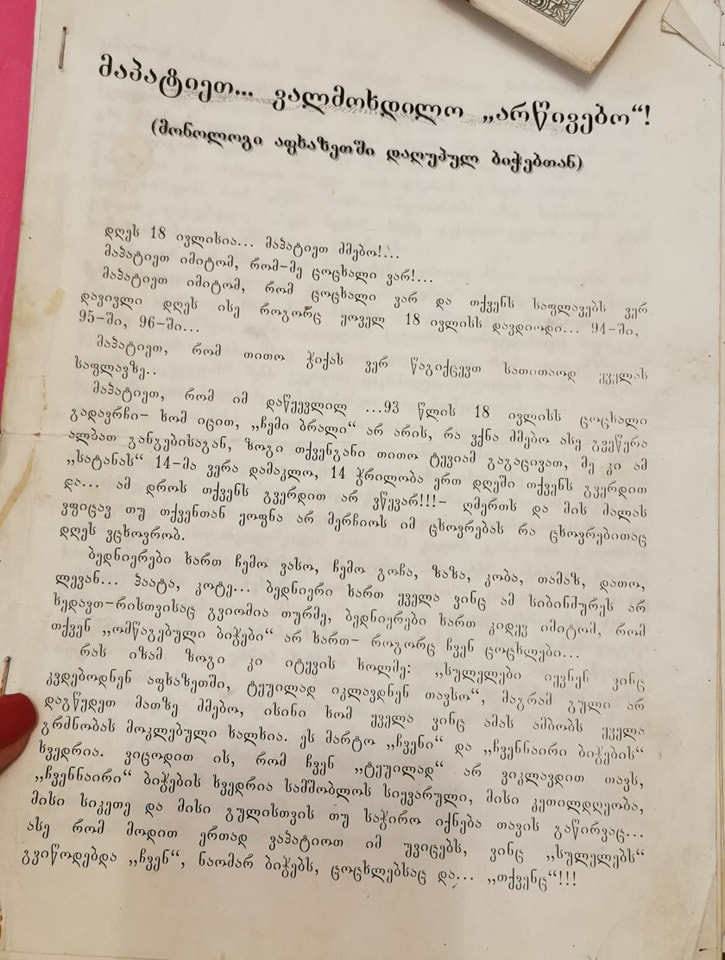 მაპატიეთ... ვალმოხდილო „არწივებო“!
(მონოლოგი აფხაზეთში დაღუპულ ბიჭებთან)
დღეს 18 ივლისია... მაპატიეთ ძმებო!...
მაპატიეთ იმიტომ, რომ-მე ცოცხალი ვარ!...
მაპატიეთ იმიტომ, რომ ცოცხალი ვარ და თქვენს საფლავებს ვერ
დავივლი დღეს ისე როგორც ყოველ 18 ივლისს დავდიოდი... 94-ში,
95-ში, 96-ში...
მაპატიეთ, რომ თითო ჭიქას ვერ წაგიქცევთ სათითაოდ ყველას
საფლავზე..
მაპატიეთ, რომ იმ დაწყევლილ ...93 წლის 18 ივლისს ცოცხალი
გადავრჩი- ხომ იცით, „ჩემი ბრალი“ არ არის, რა ვქნა ძმებო ასე გვეწერა
ალბათ განგებისაგან, ზოგი თქვენგანი თითო ტყვიამ გაგაცივათ, მე კი ამ
„სატანას“ 14-მა ვერა დამაკლო, 14 ჭრილობა ერთ დღეში თქვენს გვერდით
და... ამ დროს თქვენს გვერდით არ ვწევარ!!!- ღმერთს და მის მალას
ვფიცავ თუ თქვენთან ყოფნა არ მერჩიოს იმ ცხოვრებას რა ცხოვრებითაც
დღეს ვცხოვრობ.
ბედნიერები ხართ ჩემო ვასო, ჩემო გოჩა, ზაზა, კობა, თამაზ, დათო,
ლევან... პაატა, კოტე... ბედნიერი ხართ ყველა ვინც ამ სიბინძურეს არ
ხედავთ-რისთვისაც გვიომია თურმე, ბედნიერები ხართ კიდევ იმიტომ, რომ
თქვენ „ომწაგებული ბიჭები“ არ ხართ- როგორც ჩვენ ცოცხლები...
რას იზამ ზოგი კი იტყვის ხოლმე: „სულელები იყვნენ ვინც
კვდებოდნენ აფხაზეთში, ტყუილად იკლავდნენ თავსო“, მაგრამ გული არ
დაგწყდეთ მათზე ძმებო, ისინი ხომ ყველა ვინც ამას ამბობს ყველა
გრძნობას მოკლებული ხალხია. ეს მარტო „ჩვენი“ და „ჩვენნაირი ბიჭების“
ხვედრია. ვიცოდით ის, რომ ჩვენ „ტყუილად“ არ ვიკლავდით თავს,
„ჩვენნაირი“ ბიჭების ხვედრია სამშობლოს სიყვარული, მისი კეთილდღეობა,
მისი სიკეთე და მისი გულისთვის თუ საჭირო იქნება თავის გაწირვაც...
ასე რომ მოდით ერთად ვაპატიოთ იმ უვიცებს, ვინც „სულელებს“
გვიწოდებდა „ჩვენ“, ნაომარ ბიჭებს, ცოცხლებსაც და... „თქვენც“!!!